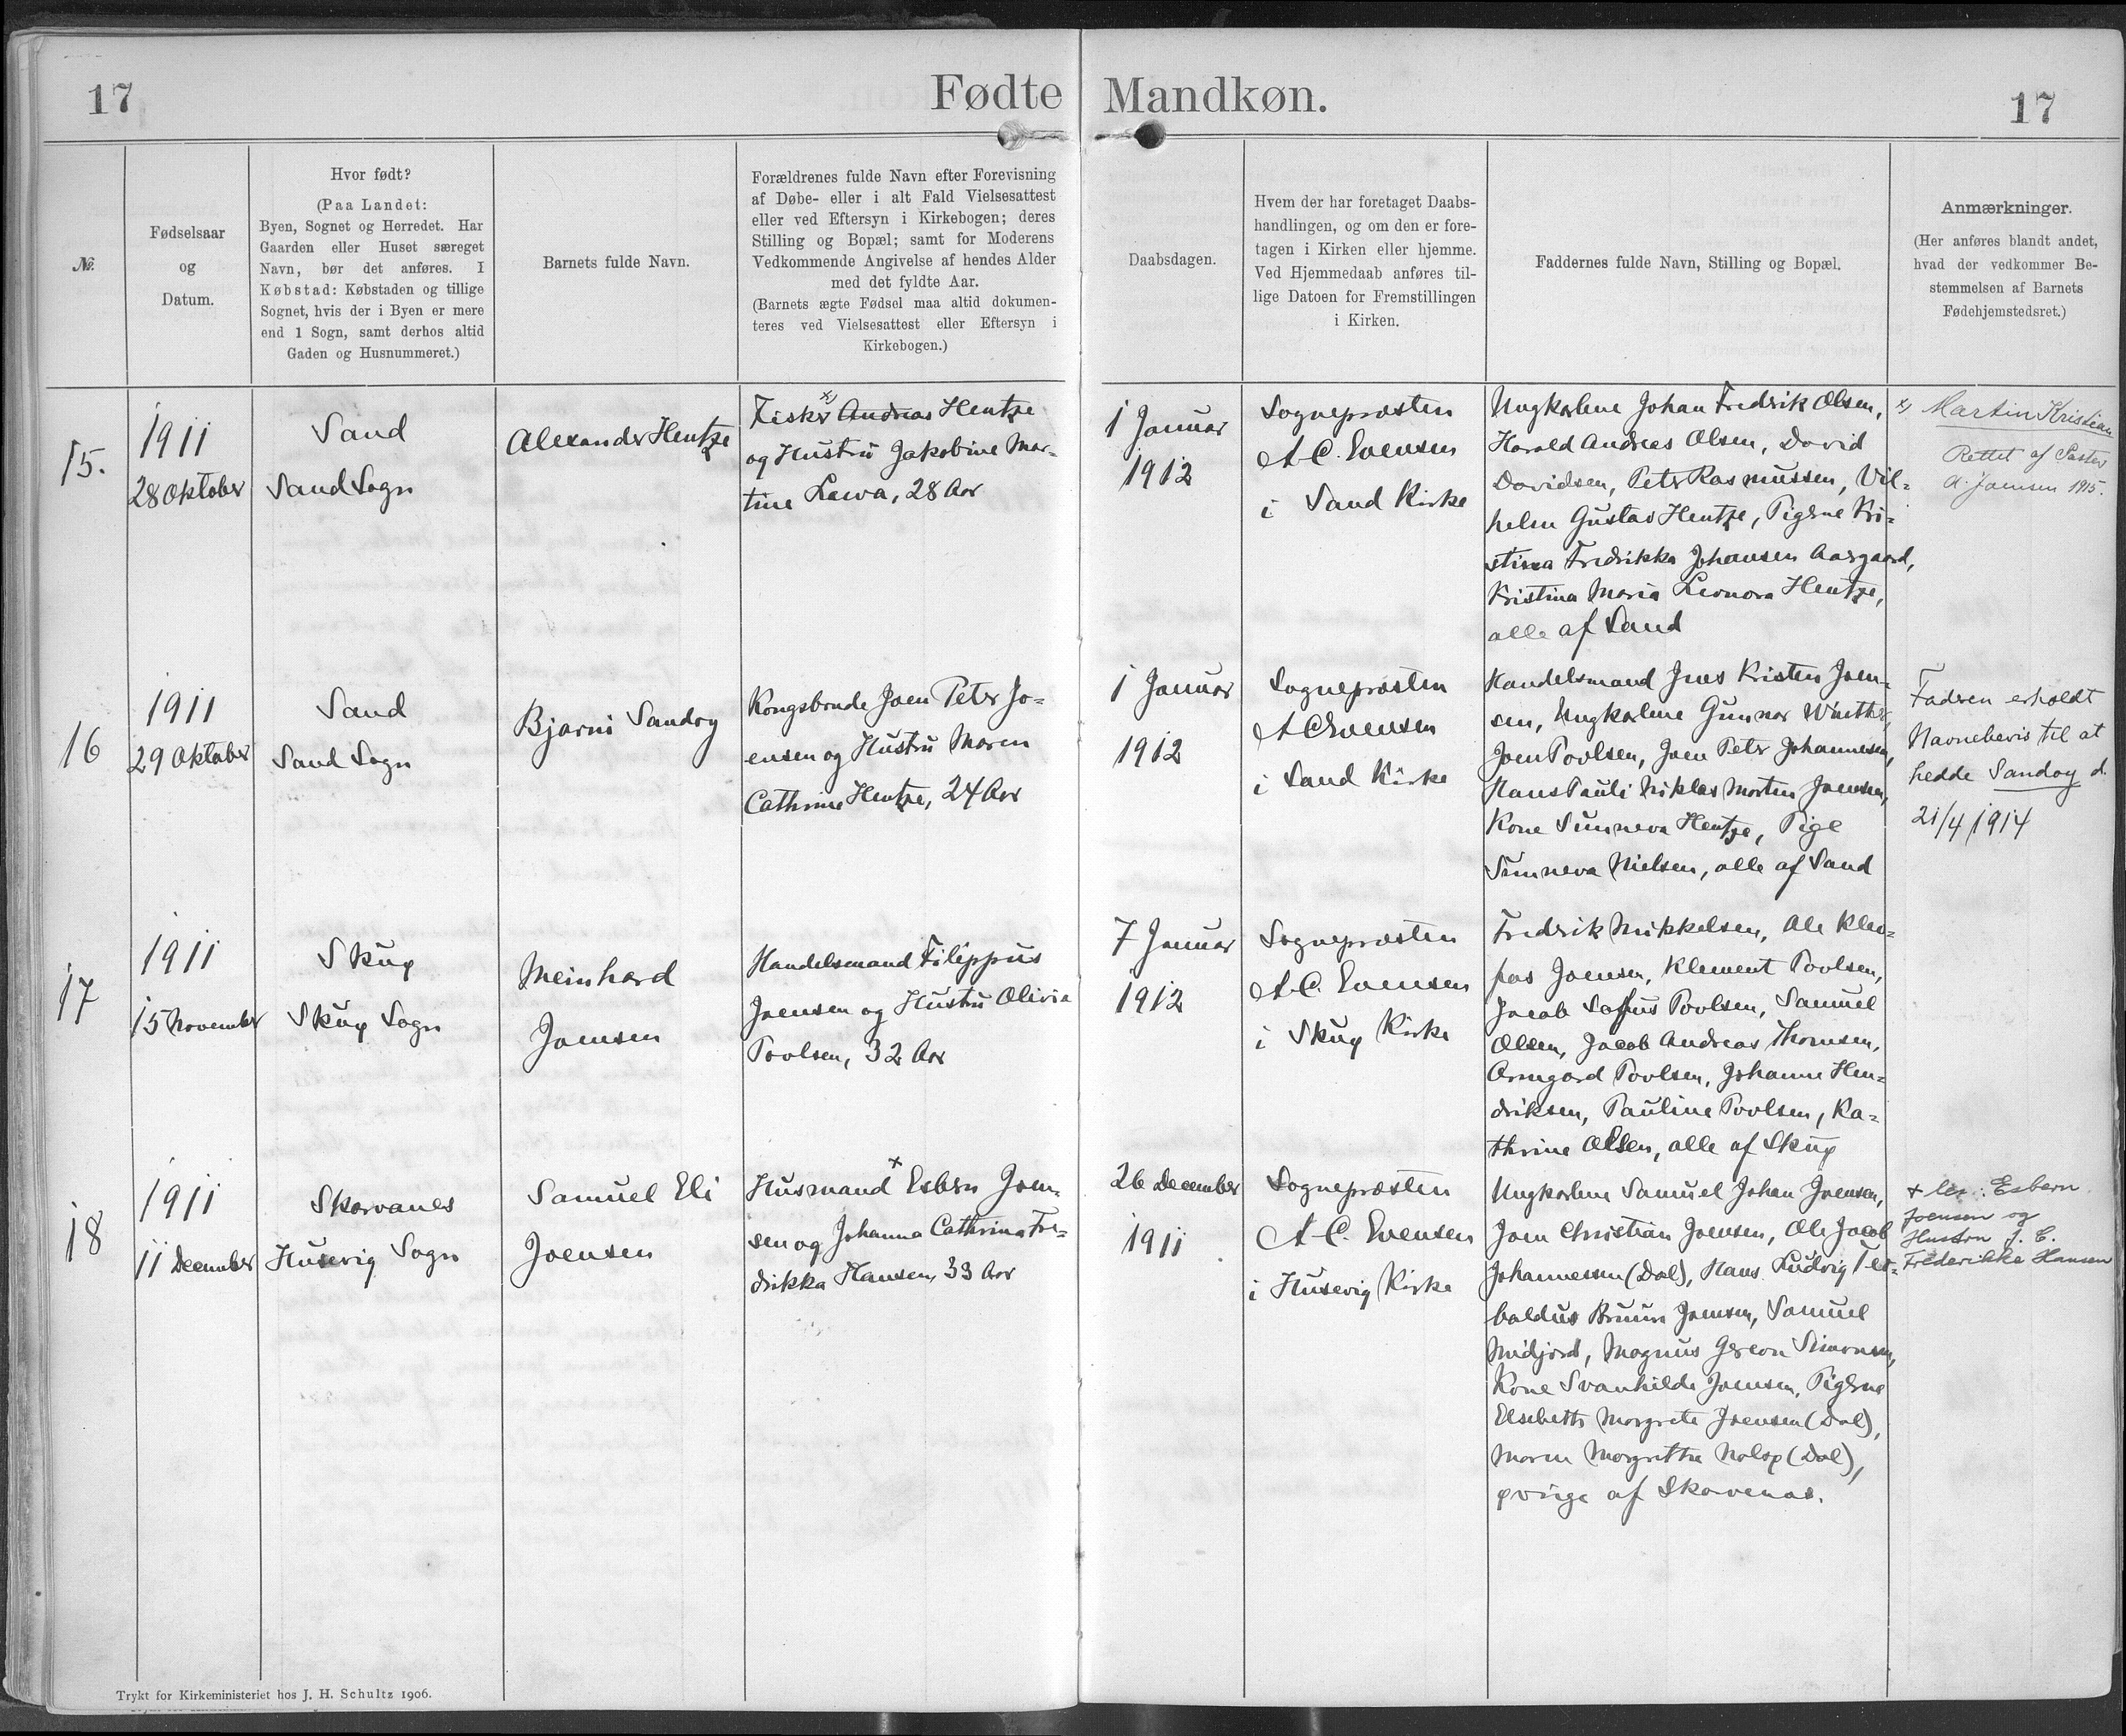 17
Fødte Mandkøn.
17
№.
Fødselsaar
og
Datum.
Hvor født?
(Paa Landet:
Byen, Sognet og Herredet. Har
Gaarden eller Huset særeget
Navn, bør det anføres. I
Købstad: Købstaden og tillige
Sognet, hvis der i Byen er mere
end 1 Sogn, samt derhos altid
Gaden og Husnummeret.)
Barnets fulde Navn.
Forældrenes fulde Navn efter Forevisning
af Døbe- eller i alt Fald Vielsesattest
eller ved Eftersyn i Kirkebogen; deres
Stilling og Bopæl; samt for Moderens
Vedkommende Angivelse af hendes Alder
med det fyldte Aar.
(Barnets ægte Fødsel maa altid dokumen-
teres ved Vielsesattest eller Eftersyn i
Kirkebogen.)
Daabsdagen.
Hvem der har foretaget Daabs-
handlingen, og om den er fore-
tagen i Kirken eller hjemme.
Ved Hjemmedaab anføres til-
lige Datoen for Fremstillingen
i Kirken.
Faddernes fulde Navn, Stilling og Bopæl.
Anmærkninger.
(Her anføres blandt andet,
hvad der vedkommer Be-
stemmelsen af Barnets
Fødehjemstedsret.)
15.
1911
28 Oktober
Sand
Sand Sogn
Alexander Hentze
Fisker x) Andreas Hentze
og Hustru Jakobine Mar-
tine Lava, 28 Aar
1 Januar
1912
Sognepræsten
A.C. Evensen
i Sand Kirke
Ungkarlene Johan Fredrik Olsen,
Harald Andreas Olsen, David
Davidsen, Peter Rasmussen, Vil-
helm Gustav Hentze, Pigerne Kri-
stina Fredrikka Johansen Aargaard,
Kristina Maria Leonora Hentze,
alle af Sand
x) Martin Kristian
Rettet af Pastor
A. Joensen 1915.
16
1911
29 Oktober
Sand
Sand Sogn
Bjarni Sandoy
Kongsbonde Joen Peter Jo-
ensen og Hustru Maren
Cathrine Hentze, 24 Aar
1 Januar
1912
Sognepræsten
A C Evensen
i Sand Kirke
Handelsmand Jens Kristen Joen-
sen, Ungkarlene Gunnar Winther,
Joen Poulsen, Joen Peter Johannesen,
Hans Pauli Niklas Morten Joensen,
Kone Sunneva Hentze, Pige
Sunneva Nielsen, alle af Sand
Fadren erholdt
Navnebevis til at
hedde Sandoy d.
21/4 1914
17
1911
15 November
Skuø
Skuø Sogn
Meinhard
Joensen
Handelsmand Filippus
Joensen og Hustru Olivia
Poulsen, 32 Aar
7 Januar
1912
Sognepræsten
A.C. Evensen
i Skuø Kirke
Fredrik Mikkelsen, Ole Kleo-
pas Joensen, Klement Poulsen,
Jacob Sofus Poulsen, Samuel
Olsen, Jacob Andreas Thomsen,
Armgard Poulsen, Johanne Hen-
driksen, Pauline Poulsen, Ka-
thrine Olsen, alle af Skuø
18
1911
11 December
Skarvanes
Husevig Sogn
Samuel Eli
Joensen
Husmand x Esbern Joen-
sen og Johanna Cathrina Fre-
drikka Hansen, 33 Aar
26 December
1911
Sognepræsten
A.C. Evensen
i Husevig Kirke
Ungkarlene Samuel Johan Joensen,
Joen Christian Joensen, Ole Jacob
Johannesen (Dal), Hans Ludvig
baldus Bruun Joensen, Samuel
Midjord, Magnus Gereon Simonsen,
Kone Svanhilda Joensen, Pigerne
Elsebeth Margrete Joensen (Dal),
Maren Margretha Nolsø (Dal),
øvrige af Skarvenæs.
x læs: Esbern
Joensen og
Hustru J. C.
Frederikke Hansen
Trykt for Kirkeministeriet hos J. H. Schultz 1906.